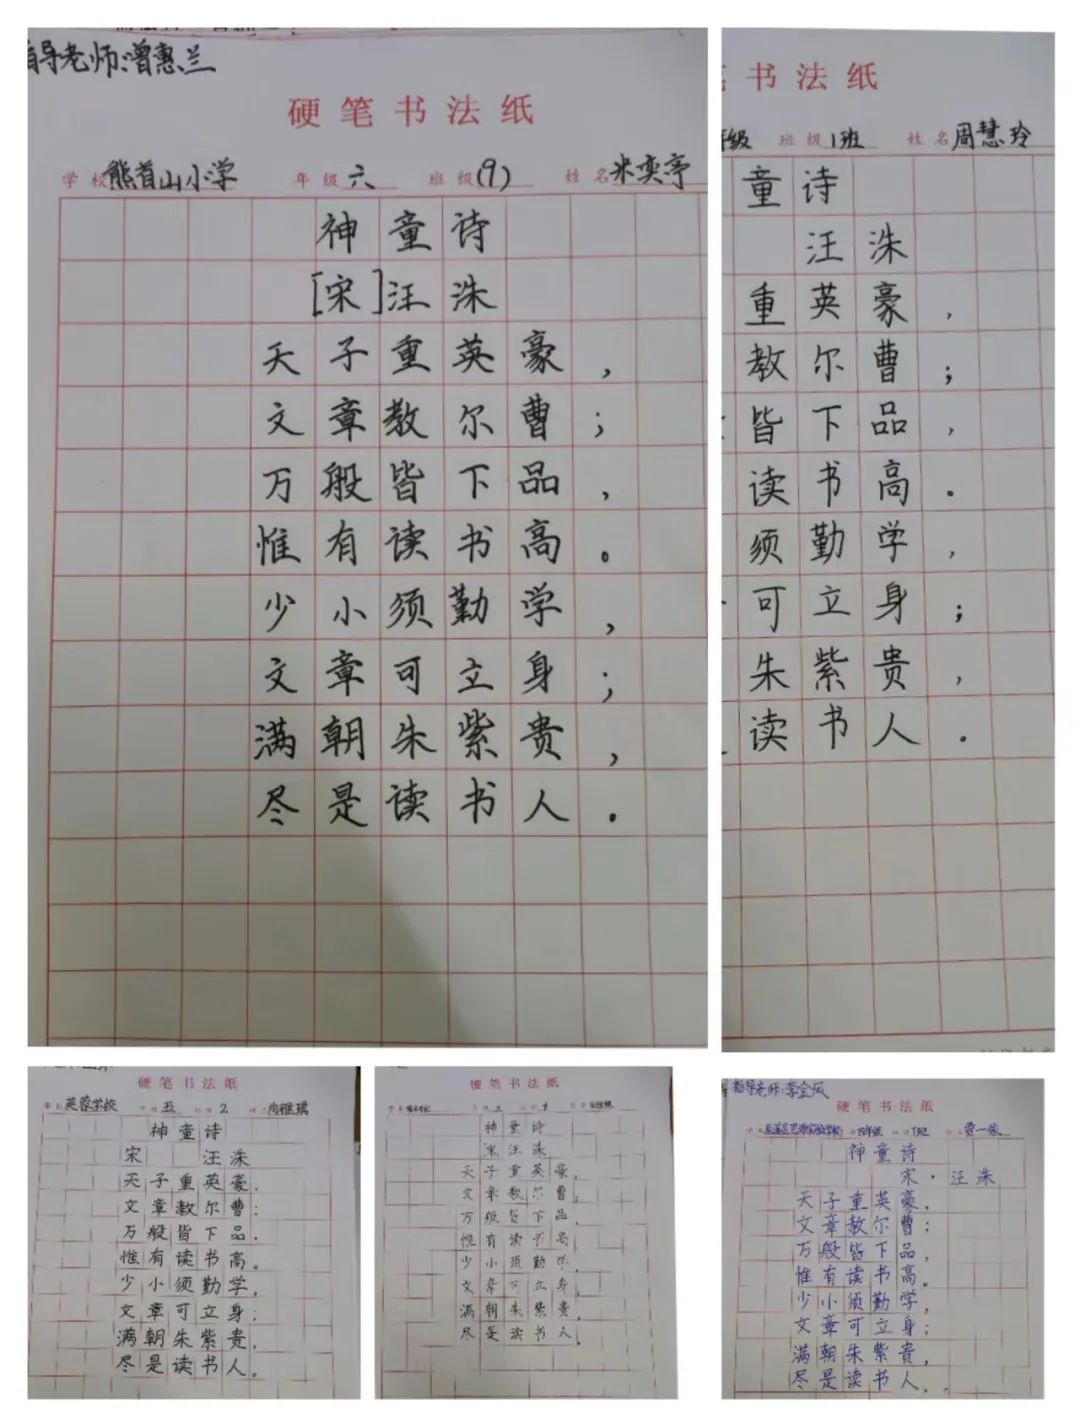 指导老师:曾惠兰
硬笔书法纸
学校 熊首山小学 年级 六 班级 (9) 姓名 米奕亭
神童诗
[宋]汪洙
天子重英豪，
文章教尔曹；
万般皆下品，
惟有读书高。
少小须勤学，
文章可立身；
满朝朱紫贵，
尽是读书人。
书法纸
年级 班级 1班 姓名 周慧玲
童诗
汪洙
重英豪，
教尔曹；
皆下品，
读书高。
须勤学，
可立身；
朱紫贵，
读书人.
硬笔书法纸
芙蓉学校 五 2 向雅琪
神童诗
宋 汪洙
天子重英豪，
文章教尔曹：
万般皆下品，
惟有读书高。
少小须勤学，
文章可立身；
满朝朱紫贵，
尽是读书人。
硬笔书法纸
神童诗
宋汪洙
天子重英豪，
文章教尔曹；
万般皆下品，
惟有读书高
少小须勤学，
文章可立身
满朝朱紫贵，
尽是读书人
指导老师:李金凤
硬笔书法纸
神童诗
宋·汪洙
天子重英豪，
文章教尔曹；
万般皆下品，
惟有读书高。
少小须勤学，
文章可立身；
满朝朱紫贵，
尽是读书人。